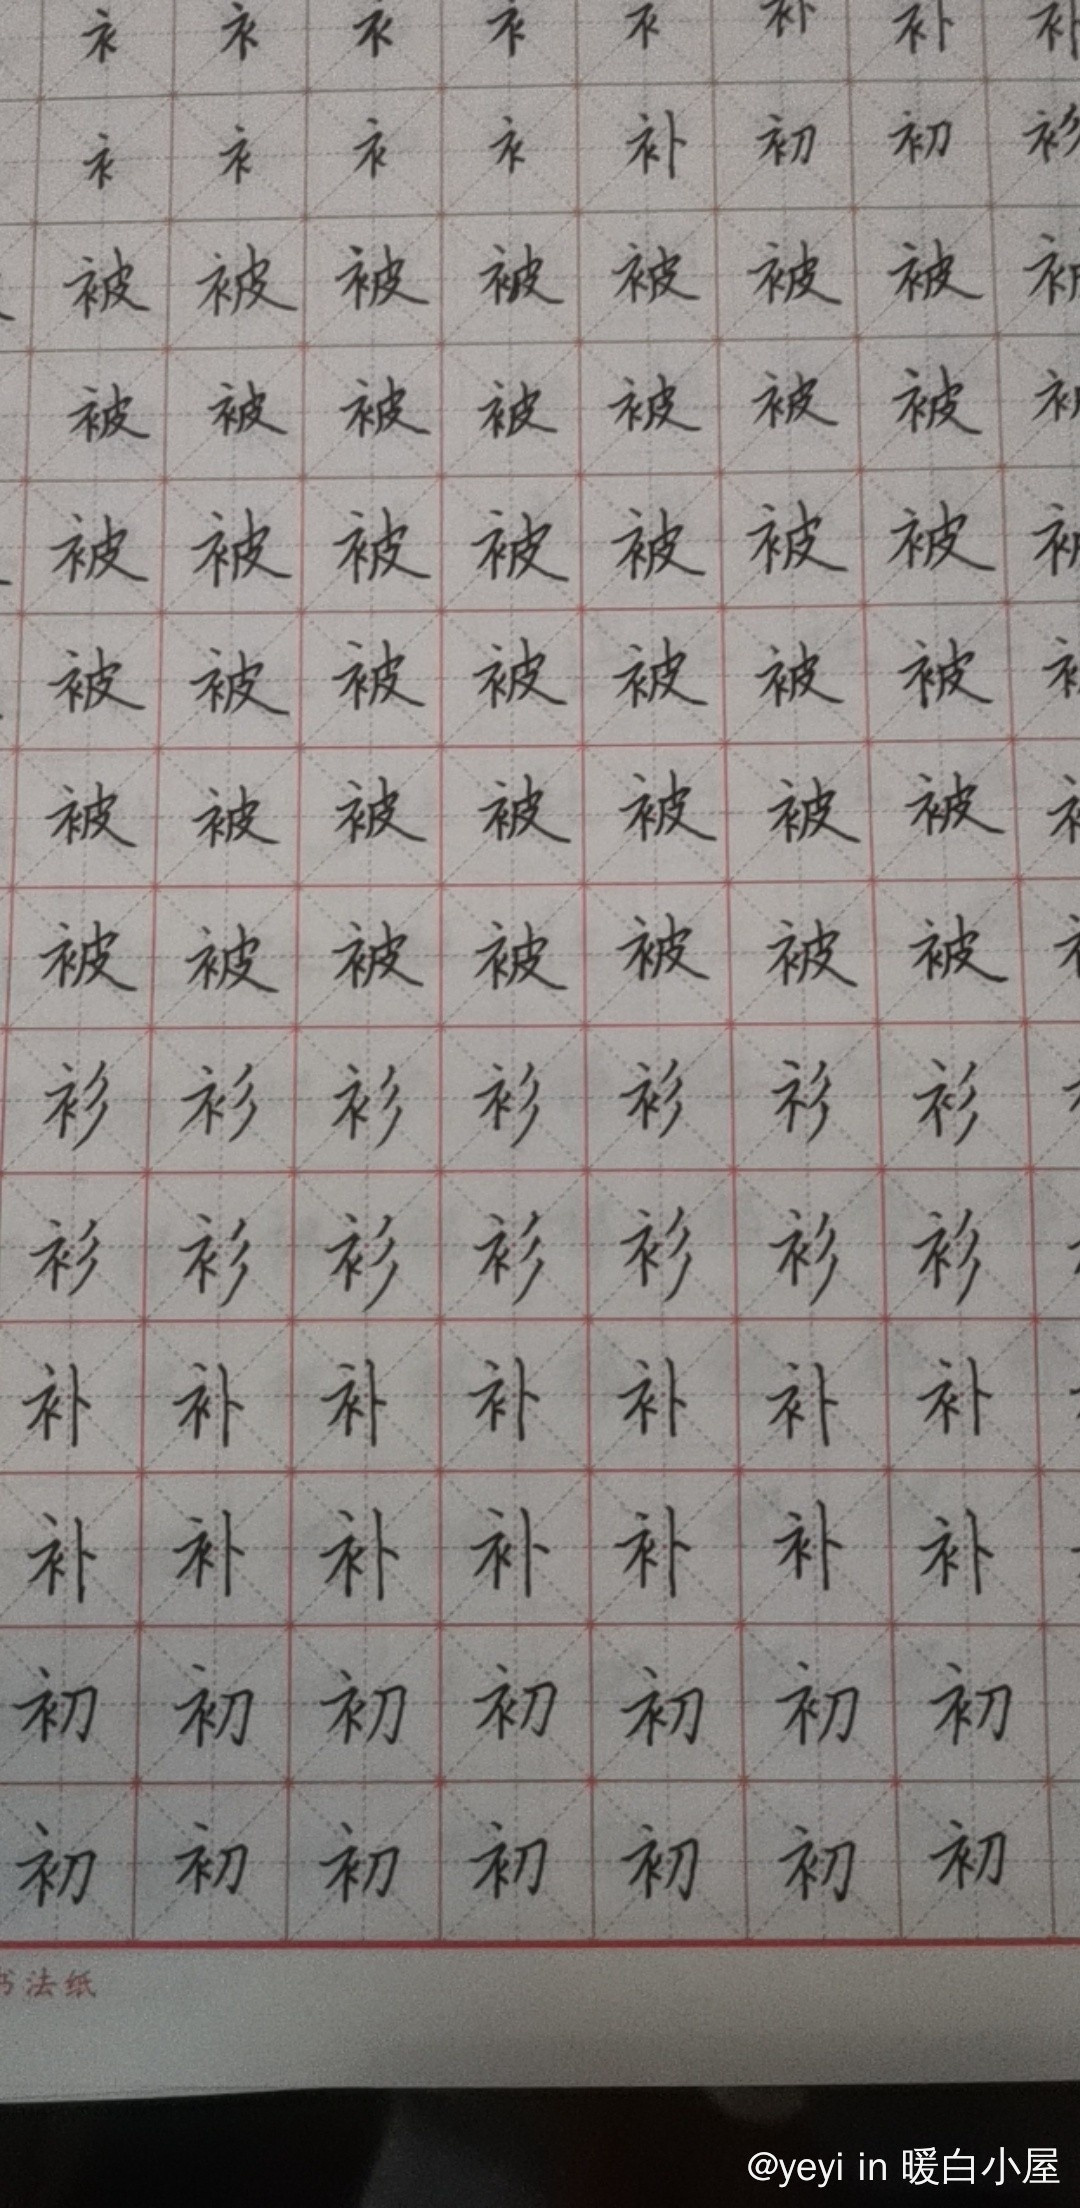 衤 衤 衤 衤 衤 补 补 补
衤 衤 衤 衤 补 初 初 衫
被 被 被 被 被 被 被 被
被 被 被 被 被 被 被 被
被 被 被 被 被 被 被 被
被 被 被 被 被 被 被 被
被 被 被 被 被 被 被
被 被 被 被 被 被 被
衫 衫 衫 衫 衫 衫 衫
衫 衫 衫 衫 衫 衫 衫
补 补 补 补 补 补 补
补 补 补 补 补 补 补
初 初 初 初 初 初 初
初 初 初 初 初 初 初
书法纸
@yeyi in 暖白小屋